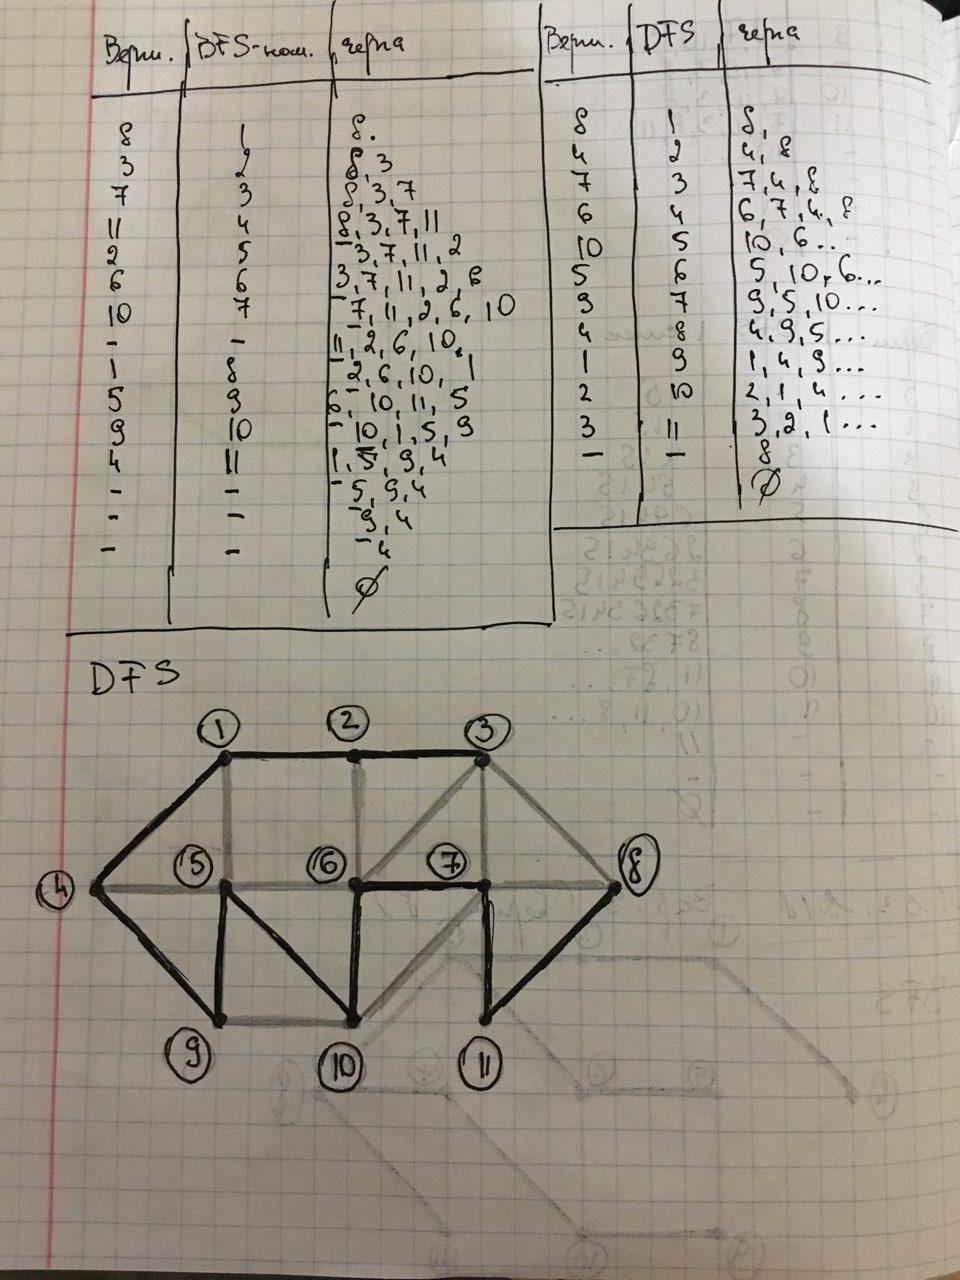 Верш. BFS-ном. черга
8 1 8.
3 2 8,3
7 3 8,3,7
11 4 8,3,7,11
2 5 3,7,11,2
6 6 3,7,11,2,6
10 7 7,11,2,6,10
- - 11,2,6,10.
1 8 2,6,10,1
5 9 6,10,11,5
9 10 10,1,5,9
4 11 1,5,9,4
- - 5,9,4
- - 9,4
- - 4
∅
Верш. DFS черга
8 1 8,
4 2 4,8
7 3 7,4,8
6 4 6,7,4,8
10 5 10,6..
5 6 5,10,6...
9 7 9,5,10...
4 8 4,9,5...
1 9 1,4,9...
2 10 2,1,4...
3 11 3,2,1...
- - 8
∅
DFS
1 2 3
4 5 6 7 8
9 10 11